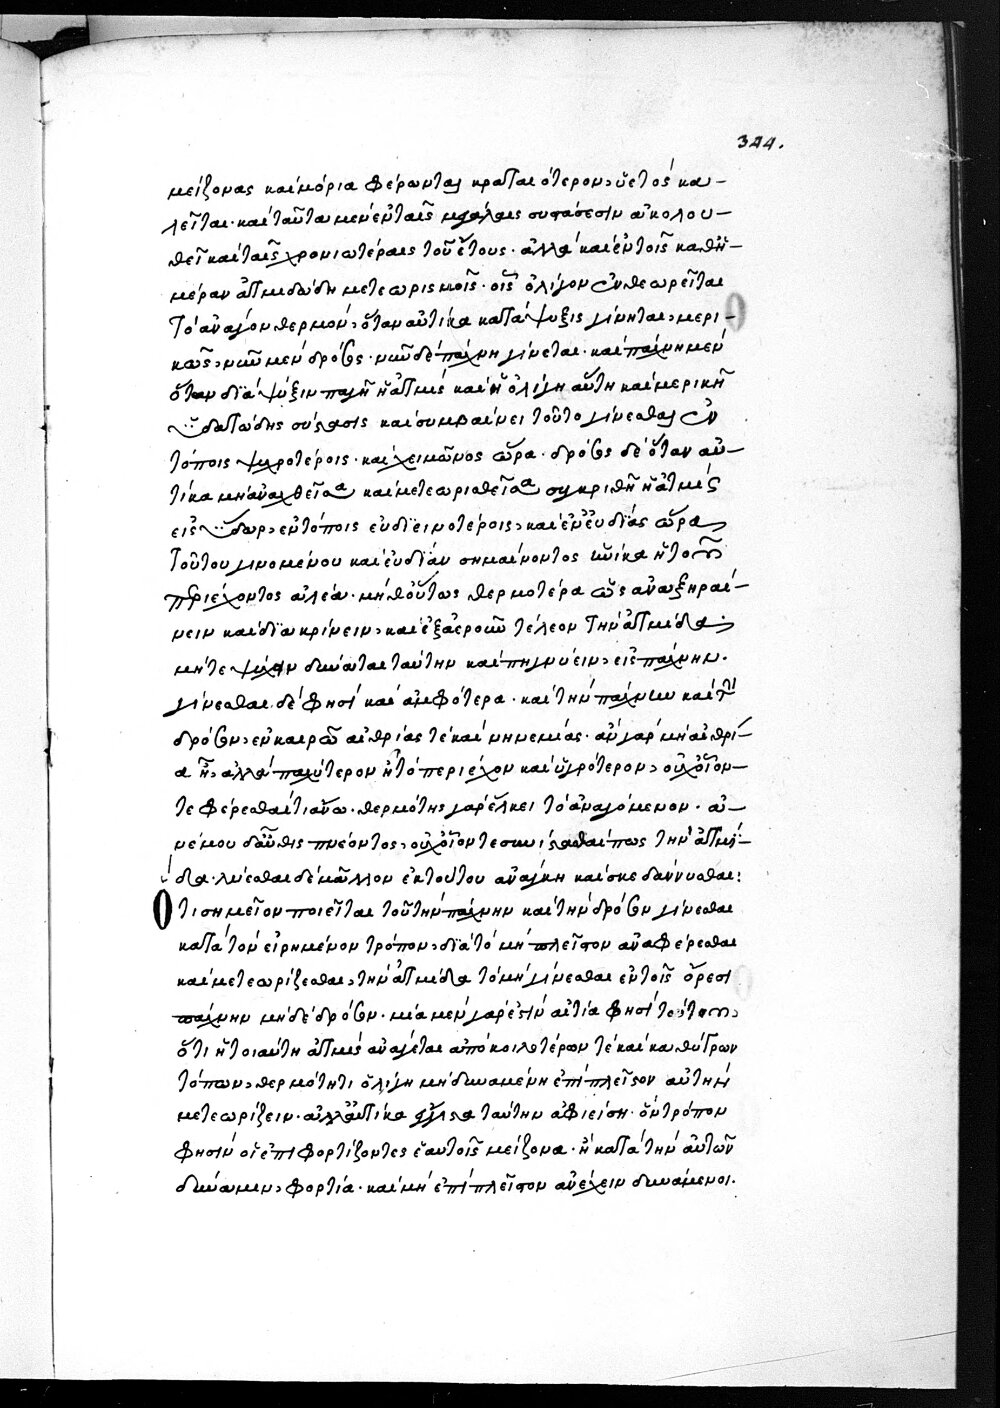 344.
μείζονας καὶ μόρια φέρωνται κραταιότερον, ὑετὸς κα-
λεῖται· καὶ ταῦτα μὲν ἐν ταῖς μεγάλαις συστάσεσιν ἀκολου-
θεῖ καὶ ταῖς χρονιωτέραις τοῦ ἔτους· ἀλλὰ καὶ ἐν τοῖς καθη-
μέραν ἀτμιδώδη μετεωρισμοῖς· οἷς ὀλίγον ἐνθεωρεῖται
τὸ ἀνάγον θερμὸν, ὅταν αὐτίκα κατάψυξις γίνηται, μερι-
κῶς, νῦν μὲν δρόσος· νῦν δὲ πάχνη γίνεται· καὶ πάχνη μὲν
ὅταν διὰ ψύξιν παγῇ ἡ ἀτμὶς καὶ ἡ ὀλίγη αὕτη καὶ μερικὴ
ὑδατώδης σύστασις καὶ συμβαίνει τοῦτο γίνεσθαι ἐν
τόποις ψυχροτέροις· καὶ χειμῶνος ὥρα· δρόσος δὲ ὅταν αὐ-
τίκα μὴ ἀναχθεῖσα καὶ μετεωρισθεῖσα συγκριθῆ ἡ ἀτμὶς
εἰς ὕδωρ, ἐν τόποις εὐδιεινοτέροις, καὶ ἐν εὐδίας ὥρα,
τούτου γινομένου καὶ εὐδίαν σημαίνοντος ἡνίκα ἡ τοῦ
περιέχοντος ἀλέα· μήθ' οὕτως θερμοτέρα ὡς ἀναξηραί-
νειν καὶ διακρίνειν, καὶ ἐξαεροῦν τέλεον τὴν ἀτμίδα,
μήτε ψύχειν δύναται ταύτην καὶ πηγνύειν, εἰς πάχνην.
γίνεσθαι δὲ φησὶ καὶ ἀμφότερα· καὶ τὴν πάχνην καὶ τὴν
δρόσον, ἐν καιρῶ αἰθρίας τὲ καὶ νηνεμίας· ἂν γὰρ μὴ αἰθρί-
α ᾖ, ἀλλὰ παχύτερον ᾖ τὸ περιέχον καὶ ὑγρότερον, οὐχ οἷον-
τε φέρεσθαί τι ἄνω· θερμότης γὰρ ἕλκει τὸ ἀναγόμενον· ἀ-
νέμου δ' αὖθις πνέοντος, οὐχ οἷόντε συνίστασθαί πως τὴν ἀτμί-
δα· λύεσθαι δὲ μᾶλλον ἐκ τούτου ἀνάγκη καὶ σκεδάννυσθαι:
Ὅτι σημεῖον ποιεῖται τοῦ τὴν πάχνην καὶ τὴν δρόσον γίνεσθαι
κατὰ τὸν εἰρημένον τρόπον, διὰ τὸ μὴ πλεῖστον ἀναφέρεσθαι
καὶ μετεωρίζεσθαι, τὴν ἀτμίδα τὸ μὴ γίνεσθαι ἐν τοῖς ὄρεσι
πάχνην μηδὲ δρόσον· μία μὲν γὰρ ἐστὶν αἰτία φησὶ τούτου,
ὅτι ἡ τοιαύτη ἀτμὶς ἀνάγεται ἀπὸ κοιλοτέρων τὲ καὶ καθύγρων
τόπων, θερμότητι ὀλίγη μὴ δυναμένη ἐπὶ πλεῖστον αὐτὴν
μετεωρίζειν· ἀλλ' αὐτίκα ταύτην ἀφιείση· ὃν τρόπον
φησὶν οἱ ἐπιφορτίζοντες ἑαυτοῖς μείζονα· ἢ κατὰ τὴν αὐτῶν
δύναμιν, φορτία· καὶ μὴ ἐπὶ πλεῖστον ἀνέχειν δυνάμενοι.